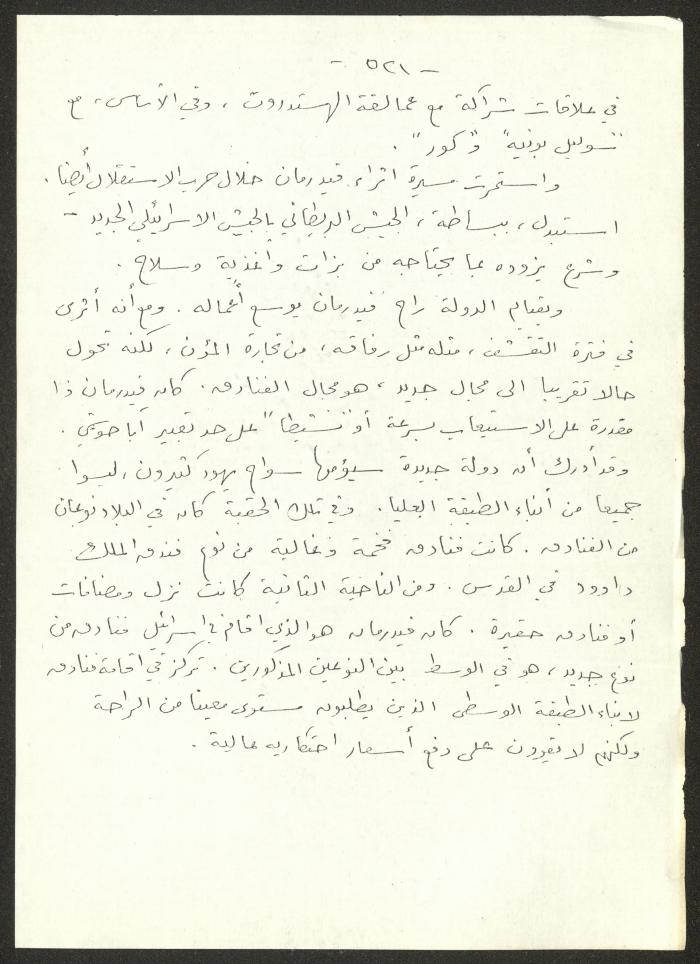 - ٥٢١ -
في علاقات شراكة مع عمالقة الهستدروت ، وفي الأساس ، مع
"سوليل بونيه" و"كور" .
واستمرت مسيرة اثراء فيدرمان خلال حرب الاستقلال أيضا .
استبدل ، ببساطة ، الجيش البريطاني بالجيش الاسرائيلي الجديد -
وشرع يزوده بما يحتاجه من بزات وأغذية وسلاح .
وبقيام الدولة راح فيدرمان يوسع أعماله . ومع أنه أثرى
في فترة التقشف ، مثله مثل رفاقه ، من تجارة المؤن ، لكنه تحول
حالا تقريبا الى مجال جديد ، هو مجال الفنادق . كان فيدرمان ذا
مقدرة على الاستيعاب بسرعة أو "نشيطا" على حد تعبير أبا حوشي .
وقد أدرك أن دولة جديدة سيؤمها سواح يهود كثيرون ، ليسوا
جميعا من أبناء الطبقة العليا . وفي تلك الحقبة كان في البلاد نوعان
من الفنادق . كانت فنادق فخمة وغالية من نوع فندق الملك
داوود في القدس . ومن الناحية الثانية كانت نزل ومضافات
أو فنادق حقيرة . كان فيدرمان هو الذي اقام في اسرائيل فنادق من
نوع جديد ، هو في الوسط بين النوعين المذكورين . تركز في اقامة فنادق
لابناء الطبقة الوسطى الذين يطلبون مستوى معينا من الراحة
ولكنهم لا يقوون على دفع أسعار احتكاريه عالية .